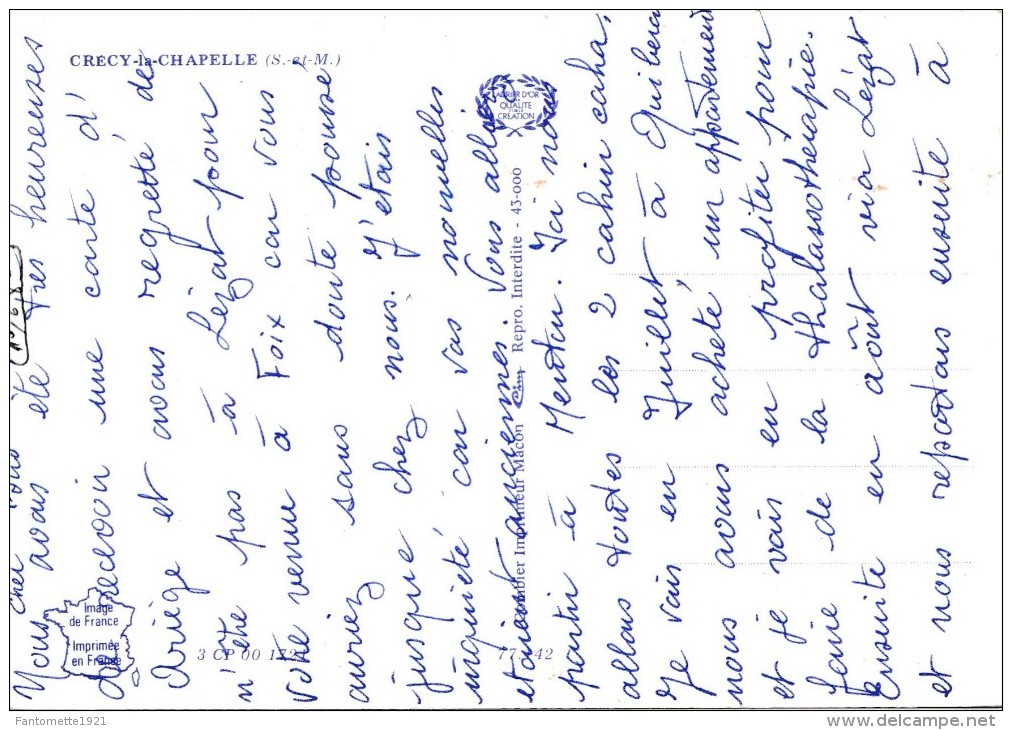 CRÉCY-la-CHAPELLE (S.-et-M.)
LAURIER D'OR
QUALITÉ
CRÉATION
Image
de France
Imprimée
en France
3 CP 00 172
77 42
Combier Imprimeur Mâcon Cim Repro. Interdite - 43-000
Cher
Nous avons été très heureuses
de recevoir une carte d'
Ariège et avons regretté de
n'être pas à Lézat pour
votre venue à Foix car vous
auriez sans doute poussé
jusque chez nous. J'étais
inquiété car vos nouvelles
étaient anciennes. Vous alliez
partir à Menton. Ici nous
allons toutes les 2 cahin caha,
Je vais en Juillet à Quiberon
nous avons acheté un appartement
et je vais en profiter pour
faire de la thalassothérapie.
Ensuite en août via Lézat
et nous repartons ensuite à
Fantomette1921
www.delcampe.net